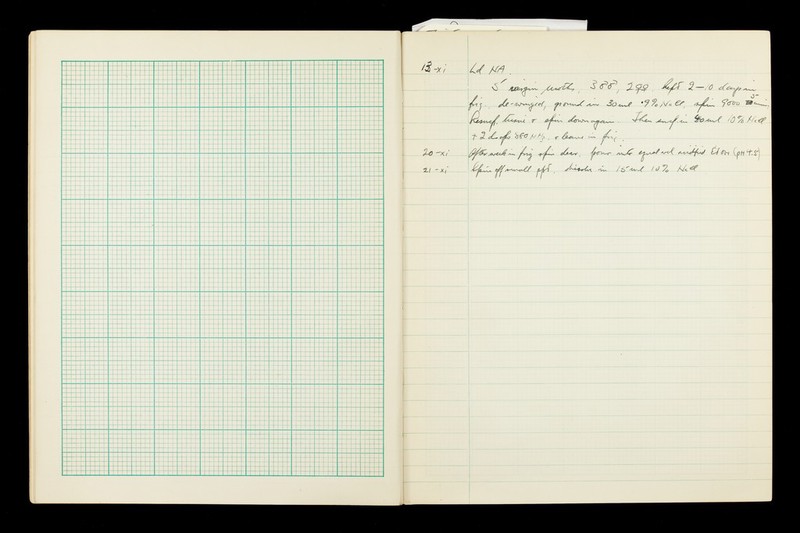 13-xi Ld NA
5 virgin moths, 3 ♂♂, 2 ♀♀. Kept 2–10 days in
frig., de-winged, ground in 30 ml ·9% NaCl, spin 9000 5 min.
Resusp. tissue & spin down again. Then susp in 40 ml 10% NaCl
+ 2 drops 880 NH3, & leave in frig.
20-xi After week in frig spin clear, pour into equal vol acidified EtOH (pH 4.5)
21-xi Spin off small ppt, dissolve in 15 ml 10% NaCl